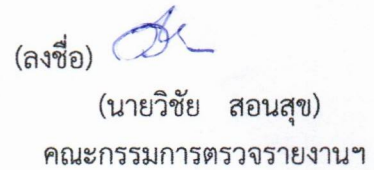 (ลงชื่อ)
(นายวิชัย สอนสุข)
คณะกรรมการตรวจรายงานฯ